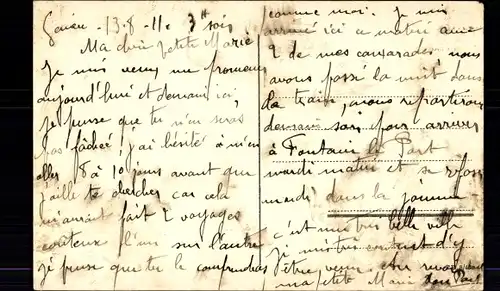 13-8-11. 3h soir
Ma chère petite Marie
Je suis venu me promener
aujourd'hui et demain ici,
je pense que tu n'en seras
pas fâchée! j'ai hésité à m'en
aller 8 à 10 jours avant que
j'aille te chercher car cela
m'aurait fait 2 voyages
coûteux l'un sur l'autre
je pense que tu le comprendras
comme moi. Je suis
arrivé ici ce matin avec
2 de mes camarades nous
avons passé la nuit dans
le train, nous repartirons
demain soir pour arriver
à Fontaine le Port
mardi matin et se reposer
mardi dans la journée
c'est une très belle ville
je suis très content d'y
être venu. Au revoir
ma petite Marie ton